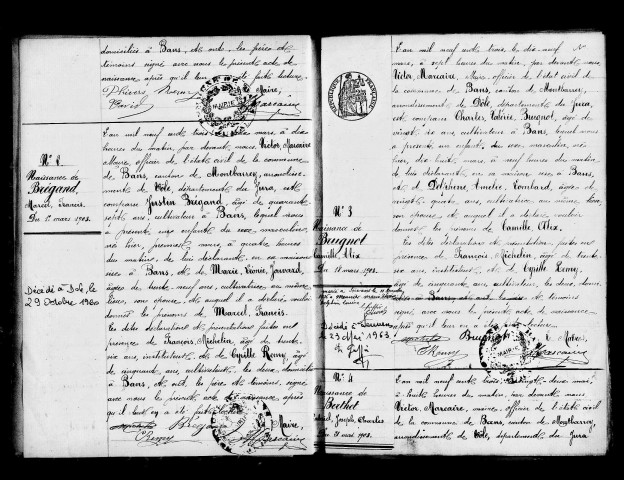 domiciliés à Bans, et ont, les pères et
témoins signé avec nous le présent acte de
naissance après qu'il leur a été faite lecture.
Le Maire,
N° 2
Naissance de
Brégand,
Marcel, Francis.
Du 1er mars 1903.
Décédé à Dole, le
29 Octobre 1960
L'an mil neuf cent trois, le deux mars, à dix
heures du matin, par devant nous, Victor, Marcaire
Maire, officier de l'état civil de la commune
de Bans, canton de Montbarrey, arrondisse-
ment de Dole, département du Jura, est
comparu Justin Brégand, âgé de quarante
sept ans, cultivateur à Bans, lequel nous
a présenté un enfant du sexe masculin
né hier, premier mars, à quatre heures
du matin, de lui déclarant, en sa maison
sise à Bans, et de Marie, Léonie,
âgée de trente neuf ans, cultivatrice, au même
lieu, son épouse, et auquel il a déclaré vouloir
donner les prénoms de Marcel, Francis.
Les dites déclarations et présentations faites en
présence de François Michelin, âgé de trente
six ans, instituteur, et de Cyrille Remy, âgé
de cinquante ans, cultivateur, les deux domiciliés
à Bans, et ont, les père et témoins, signé
avec nous le présent acte de naissance après
qu'il leur en a été fait lecture.
Le Maire,
Remy
N° 3
Naissance de
Bugnot
Camille, Alix
Du 18 mars 1903.
Décédé à
le 23 Mai 1963
L'an mil neuf cent trois, le dix neuf
mars, à sept heures du matin, par devant nous,
Victor, Marcaire, Maire, officier de l'état civil de
la commune de Bans, canton de Montbarrey,
arrondissement de Dole, département du Jura,
est comparu Charles, Valérie, Bugnot, âgé de
vingt six ans, cultivateur à Bans, lequel nous
a présenté un enfant du sexe masculin, né
hier, dix huit mars, à neuf heures du matin
de lui déclarant, en sa maison sise à Bans,
et de Delphine, Amélie, Lombard, âgée de
vingt quatre ans, cultivatrice au même lieu
son épouse et auquel il a déclaré vouloir
donner les prénoms de Camille, Alix.
Les dites déclarations et présentation faites en
présence de François, Michelin, âgé de trente
six ans, instituteur, et de Cyrille Remy, âgé
de cinquante ans, cultivateur, les deux domiciliés
à Bans, et ont, les père et témoins
signé avec nous le présent acte de naissance
après qu'il leur en a été fait lecture.
Bugnot
Le Maire,
Remy
N° 4
Naissance de
Berthet
Joseph, Charles
Du 21 mars 1903.
L'an mil neuf cent trois, le vingt deux mars,
à huit heures du matin, par devant nous,
Victor Marcaire, maire, officier de l'état civil
de la commune de Bans, canton de Montbarrey
arrondissement de Dole, département du Jura